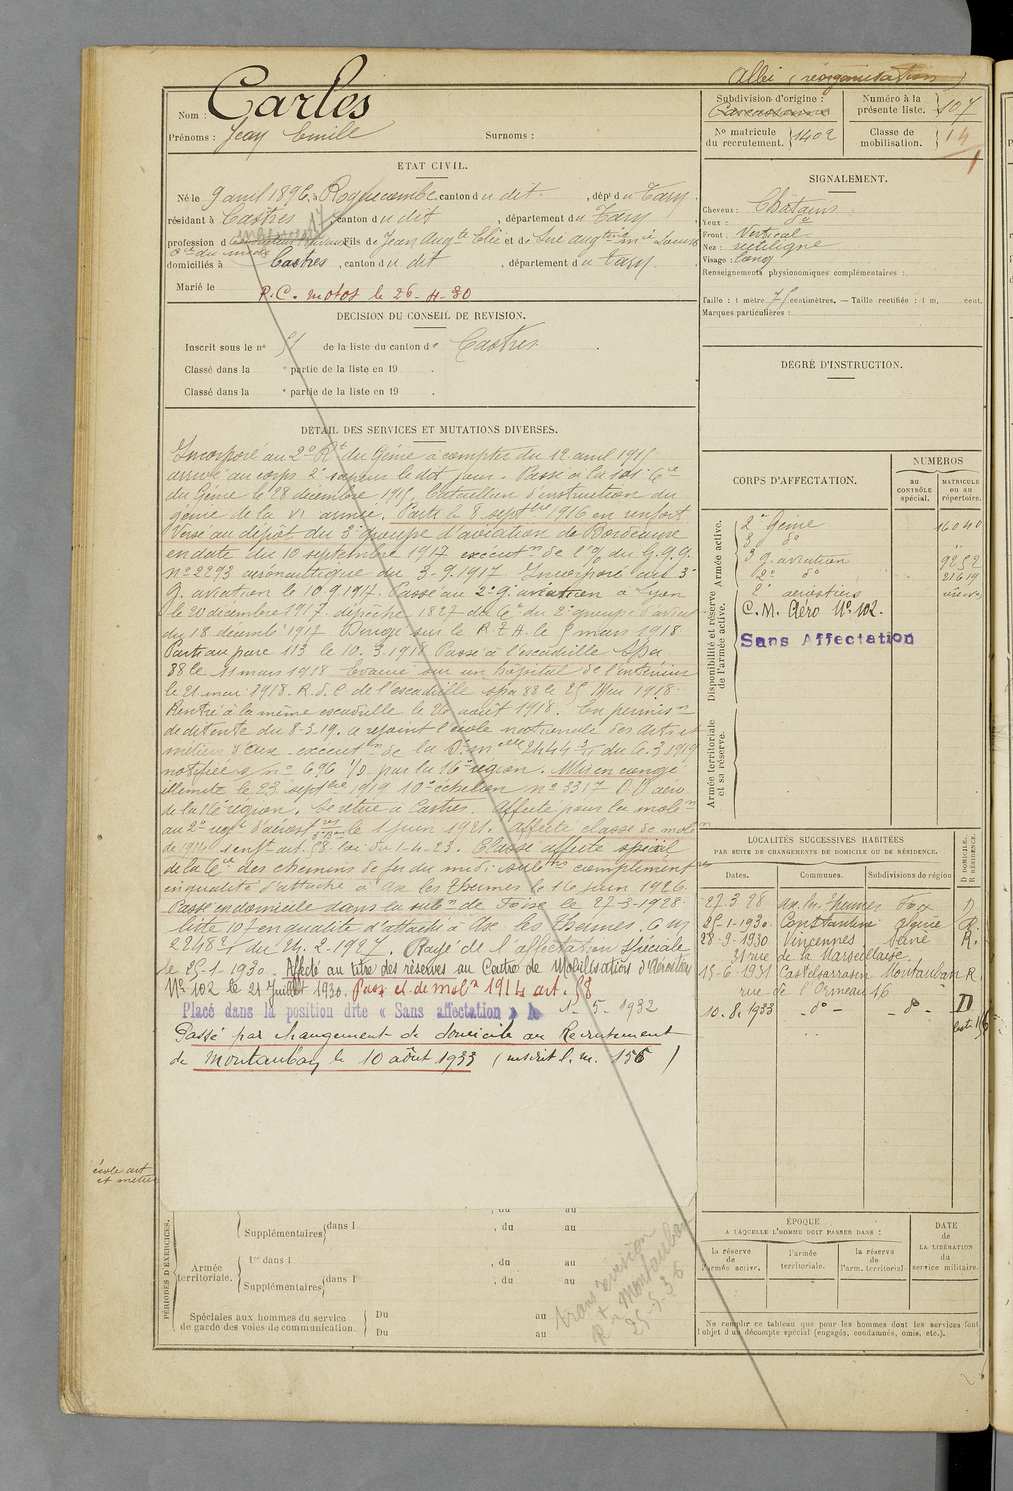 Albi (réorganisation)
Nom : Carles
Prénoms : Jean Emile Surnoms :
Subdivision d'origine : Carcassonne
Numéro à la présente liste. 107
No matricule du recrutement. 1402
Classe de mobilisation. 14
ETAT CIVIL.
Né le 9 avril 1896, à Roquecombe, canton du dit, dépt du Tarn.
résidant à Castres, canton du dit, département du Tarn
profession d Fils de Jean Augte Elie et de
domiciliés à Castres, canton du dit, département du Tarn.
Marié le
P.C. motos le 26-4-30
DECISION DU CONSEIL DE REVISION.
Inscrit sous le no 51 de la liste du canton de Castres.
Classé dans la e partie de la liste en 19 .
Classé dans la e partie de la liste en 19 .
DÉTAIL DES SERVICES ET MUTATIONS DIVERSES.
Incorporé au 2e Rt du Génie à compter du 12 avril 1915
arrivé au corps 2e sapeur le dit jour. Passé à la
du Génie le 28 décembre 1915, bataillon d'instruction du
génie de la VI armée. Parti le 8 septbre 1916 en renfort.
Versé au dépôt du 3e groupe d'aviation de Bordeaux
en date du 10 septembre 1917 exécutn de l'o/ du G.Q.G.
no 2293 aéronautique du 3-9-1917. Incorporé au 3e
g. aviation le 10.9.1917. Passé au 2e g. aviation à Lyon
le 20 décembre 1917. dépêche 1827 du du 2e groupe d'aviat
du 18 décembe 1917 Dirigé sur le R.G.A. le 5 mars 1918.
Parti au parc 113 le 10.3.1918 Passé à l'escadrille Spa
88 le 11 mars 1918 Evacué sur un hôpital de l'intérieur
le 21 mai 1918. R. d. C. de l'escadrille spa 88 le 25 Mai 1918.
Rentré à la même escadrille le 26 août 1918. En permisn
de détente du 8-3-19. a rejoint l'école nationale des arts et
métiers d'Aix exécutn de la Don mlle 2444 3/11 du 6.3.1919
notifiée s/ no 696 1/D. par la 16e région. Mis en congé
illimité le 23 septbre 1919 10e échelon no 3317 D.D aéro
de la 16e région. Se retire à Castres. Affecté pour la mobn
au 2e régt d'aérost le 1 juin 1921. Affecté classe de mobn
de 1914 1 enft art. 58. loi du 1-4-23. Classé affecté spécial
de la Cie des chemins de fer du midi subns complémentres
en qualité d'attaché à Ax les Thermes le 16 juin 1926.
Passé en domicile dans la subn de Foix le 27-3-1928.
liste 107 en qualité d'attaché à Ax les Thermes.
du 24.2-1927. Rayé de l'affectation spéciale
le 25-1-1930. Affecté au titre des réserves au Centre de Mobilisation d'Aérostation
No 102 le 21 Juillet 1930. Passé cl. de mobn 1914 art. 58
Placé dans la position dite « Sans affectation » le 1-5-1932
Passé par changement de domicile au Recrutement
de Montauban le 10 août 1933 (inscrit l.m. 156)
école art et metiers
SIGNALEMENT.
Cheveux : Châtains
Yeux :
Front : Vertical
Nez : rectiligne
Visage : long
Renseignements physionomiques complémentaires :
Taille : 1 mètre 75 centimètres. — Taille rectifiée : 1 m. cent.
Marques particulières :
DEGRÉ D'INSTRUCTION.
CORPS D'AFFECTATION.
NUMÉROS
au CONTRÔLE spécial.
MATRICULE ou au répertoire.
Armée active.
2e Génie 16040
3 do
3 g. aviation 9252
2e do 21619
Disponibilité et réserve de l'armée active.
2e aérostiers
C.M. Aéro No 102.
Sans Affectation
Armée territoriale et sa réserve.
LOCALITÉS SUCCESSIVES HABITÉES
PAR SUITE DE CHANGEMENTS DE DOMICILE OU DE RÉSIDENCE.
Dates. Communes. Subdivisions de région D DOMICILE. R RÉSIDENCE.
27-3-28 Ax les Thermes Foix D
25-1-1930. Constantine Algérie R.
28-9-1930 Vincennes. Seine R.
31 rue de la Marseillaise.
15-6-1931 Castelsarrasin Montauban R
rue de l'Ormeau 16
10.8.1933 — do — — do — D
liste 156
ÉPOQUE
A LAQUELLE L'HOMME DOIT PASSER DANS :
DATE de LA LIBÉRATION du service militaire.
la réserve de l'armée active.
l'armée territoriale.
la réserve de l'arm. territorial
Ne remplir ce tableau que pour les hommes dont les services font
l'objet d'un décompte spécial (engagés, condamnés, omis, etc.).
PÉRIODES D'EXERCICES.
Supplémentaires dans l , du au
Armée territoriale.
1re dans l , du au
Supplémentaires dans l , du au
Spéciales aux hommes du service
de garde des voies de communication.
Du au
Du au
transcription
Rt Montauban
25-5-36